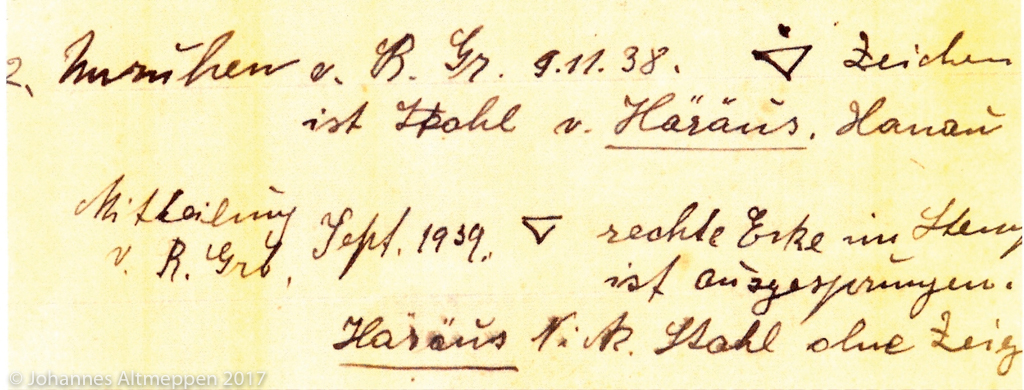 2. Unruhen v. R. Gr. 9.11.38. Zeichen
ist Stahl v. Häräus. Hanau
Mitteilung
v. R. Grb.
Sept. 1939. rechte Ecke im
ist ausgesprungen.
Häräus Ni. Stahl ohne
© Johannes Altmeppen 2017